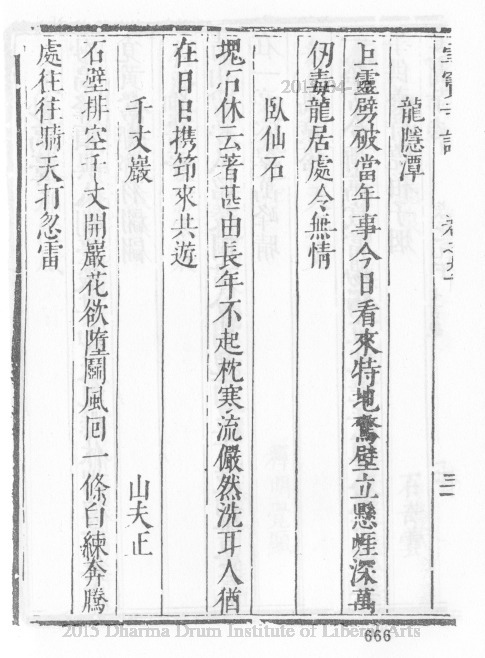 雪竇寺誌
龍隱潭
巨靈劈破當年事今日看來特地驚壁立懸崖深萬
仞毒龍居處令無情
臥仙石
塊石休云著甚由長年不起枕寒流儼然洗耳人猶
在日日携筇來共遊
千丈巖 山夫正
石壁排空千丈開巖花欲墮鬭風囘一條白練奔騰
處往往晴天打忽雷
2015 Dharma Drum Institute of Liberal Arts
666